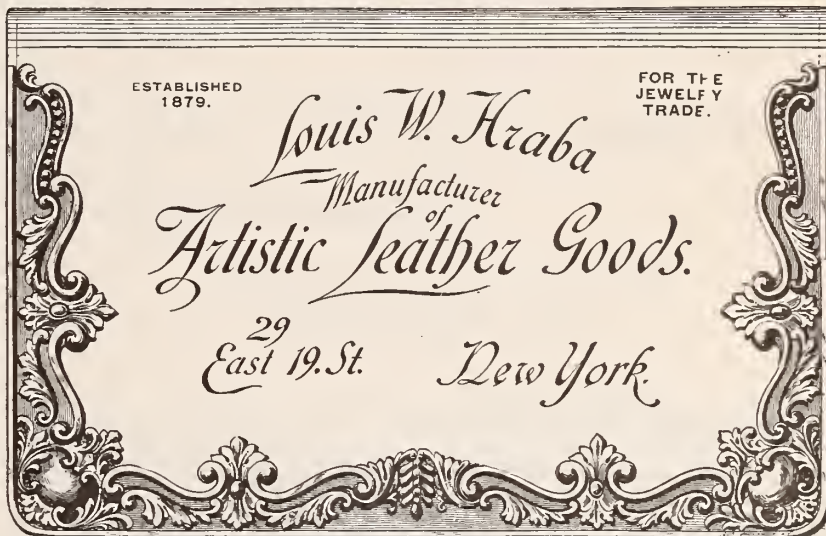 ESTABLISHED
1879.
FOR THE
JEWELRY
TRADE.
Louis W. Hraba
Manufacturer
of
Artistic Leather Goods.
29
East 19. St. New York.